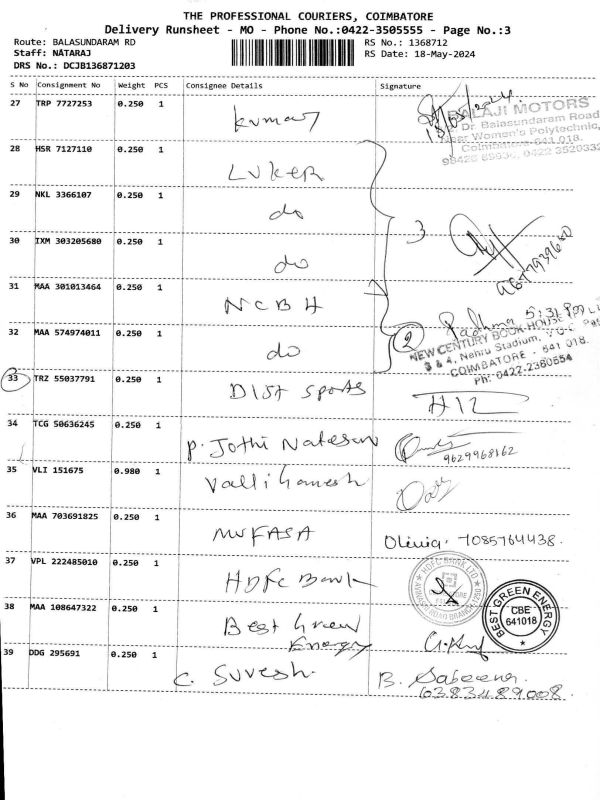 THE PROFESSIONAL COURIERS, COIMBATORE
Delivery Runsheet - MO - Phone No.:0422-3505555 - Page No.:3
Route: BALASUNDARAM RD RS No.: 1368712
Staff: NATARAJ RS Date: 18-May-2024
DRS No.: DCJB136871203
S No Consignment No Weight PCS Consignee Details Signature
27 TRP 7727253 0.250 1 kumar 18/05/2024
BALAJI MOTORS
Dr. Balasundaram Road
Near Women's Polytechnic,
Coimbatore-641 018.
28 HSR 7127110 0.250 1 LUKER
29 NKL 3366107 0.250 1 do 3
30 IXM 303205680 0.250 1 do
31 MAA 301013464 0.250 1 NCBH
Padhma 5:31
32 MAA 574974011 0.250 1 do 2
NEW CENTURY BOOK HOUSE
3 & 4, Nehru Stadium,
COIMBATORE - 641 018.
Ph: 0422-2380554
33 TRZ 55037791 0.250 1 Dist Sports
34 TCG 50636245 0.250 1 P. Jothi Natesan
9629968162
35 VLI 151675 0.980 1 Valli Ganesh
36 MAA 703691825 0.250 1 MUFASA Olivia. 7085764438.
37 VPL 222485010 0.250 1 HDFC Bank
HDFC BANK LTD
38 MAA 108647322 0.250 1 Best Green
Energy
BEST GREEN ENERGY
CBE
641018
39 DDG 295691 0.250 1 C. Suresh. B. Sabeena.
6383489008.